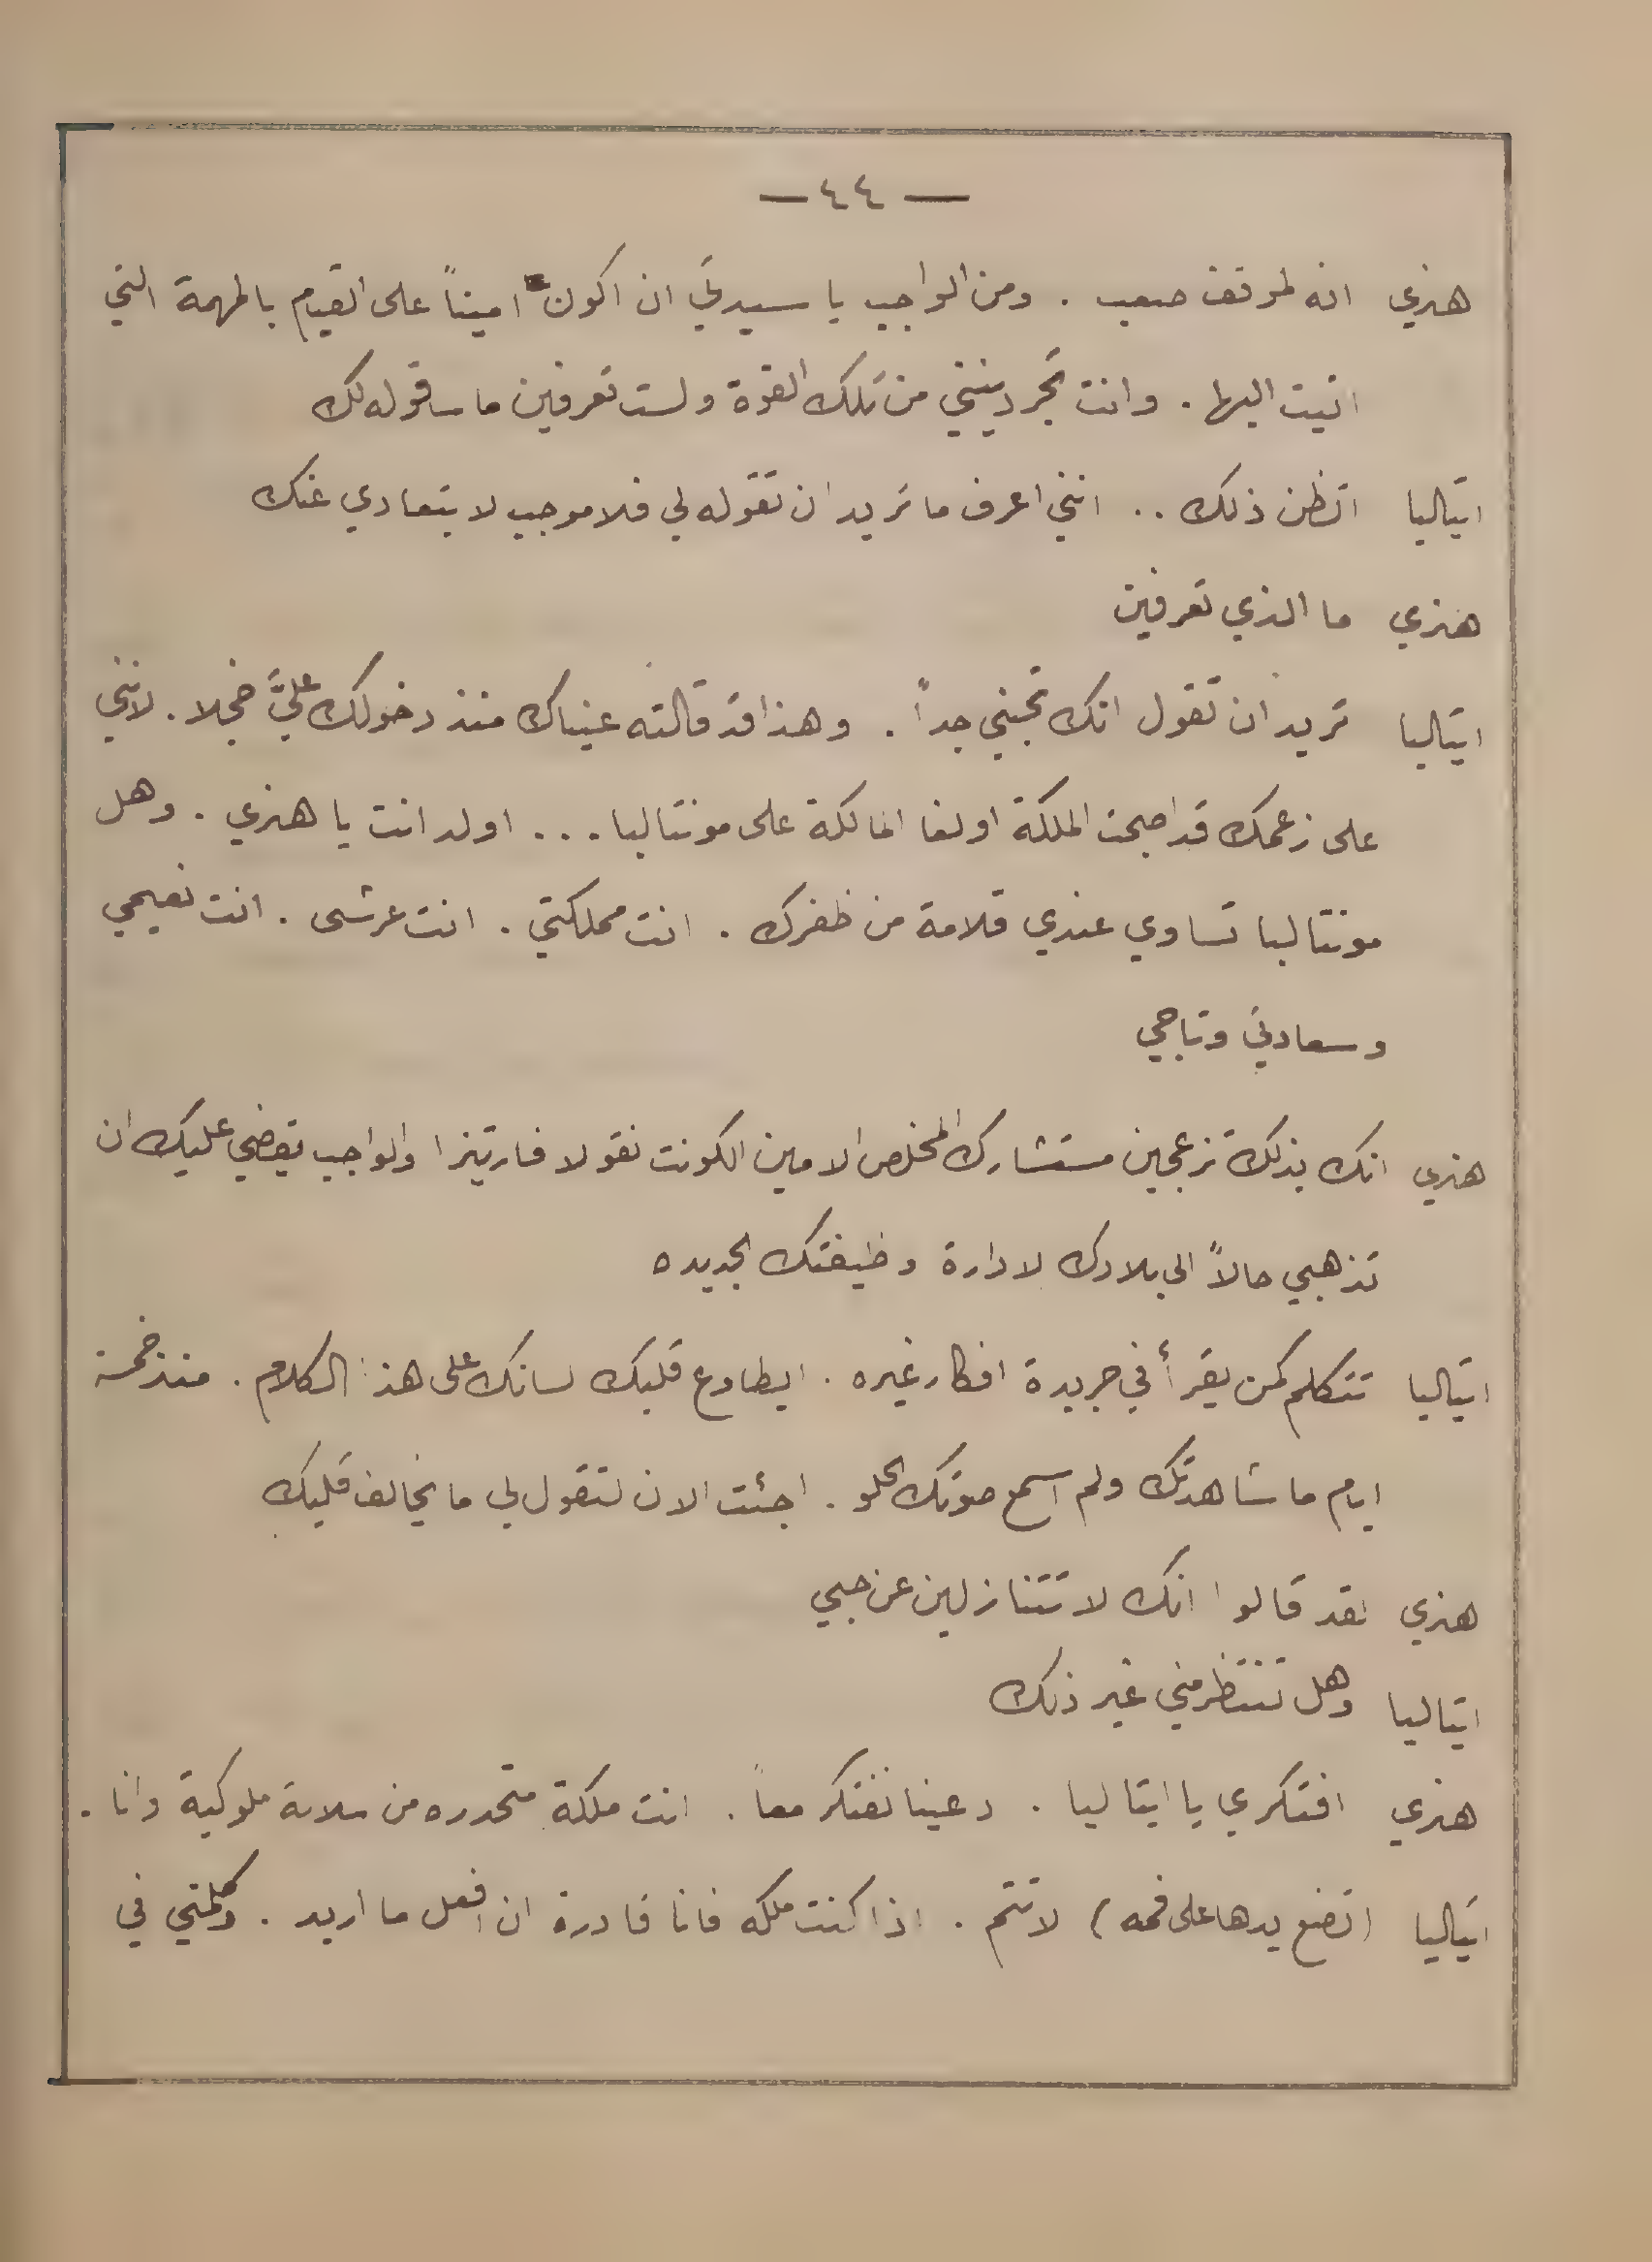 — ٤٤ —
هنري انه لموقف صعب . ومن الواجب يا سيدتي ان اكون اميناً على القيام بالمهمة التي
اتيت اليها . وانت تجردينني من تلك القوة ولست تعرفين ما ساقوله لك
ايتاليا اتظن ذلك .. انني اعرف ما تريد ان تقوله لي فلا موجب لابتعادي عنك
هنري ما الذي تعرفين
ايتاليا تريد ان تقول انك تحبني جداً . وهذا قد قالته عيناك منذ دخولك عليَّ خجلا . لانني
على زعمك قد اصبحت الملكة اولغا المالكة على مونتاليا ... اولد انت يا هنري . وهل
مونتاليا تساوي عندي قلامة من ظفرك . انت مملكتي . انت عرشى . انت نعيمي
وسعادتي وتاجي
هنري انك بذلك تزعجين مستشارك المخلص الامين الكونت نقولا فارتيزا والواجب يقضي عليك ان
تذهبي حالاً الى بلادك لادارة وظيفتك الجديده
ايتاليا تتكلم كمن يقرأ في جريدة افكار غيره . ايطاوع قلبك لسانك على هذا الكلام . منذ خمسة
ايام ما شاهدتك ولم اسمع صوتك الحلو . اجئت الان لتقول لي ما يخالف قلبك
هنري لقد قالوا انك لا تتنازلين عن حبي
ايتاليا وهل تنتظر مني غير ذلك
هنري افتكري يا ايتاليا . دعينا نفتكر معاً . انت ملكة متحدره من سلالة ملوكية وانا .
ايتاليا (تضع يدها على فمه) لا تتم . اذا كنت ملكه فانا قادرة ان افعل ما اريد . وكلمتي في